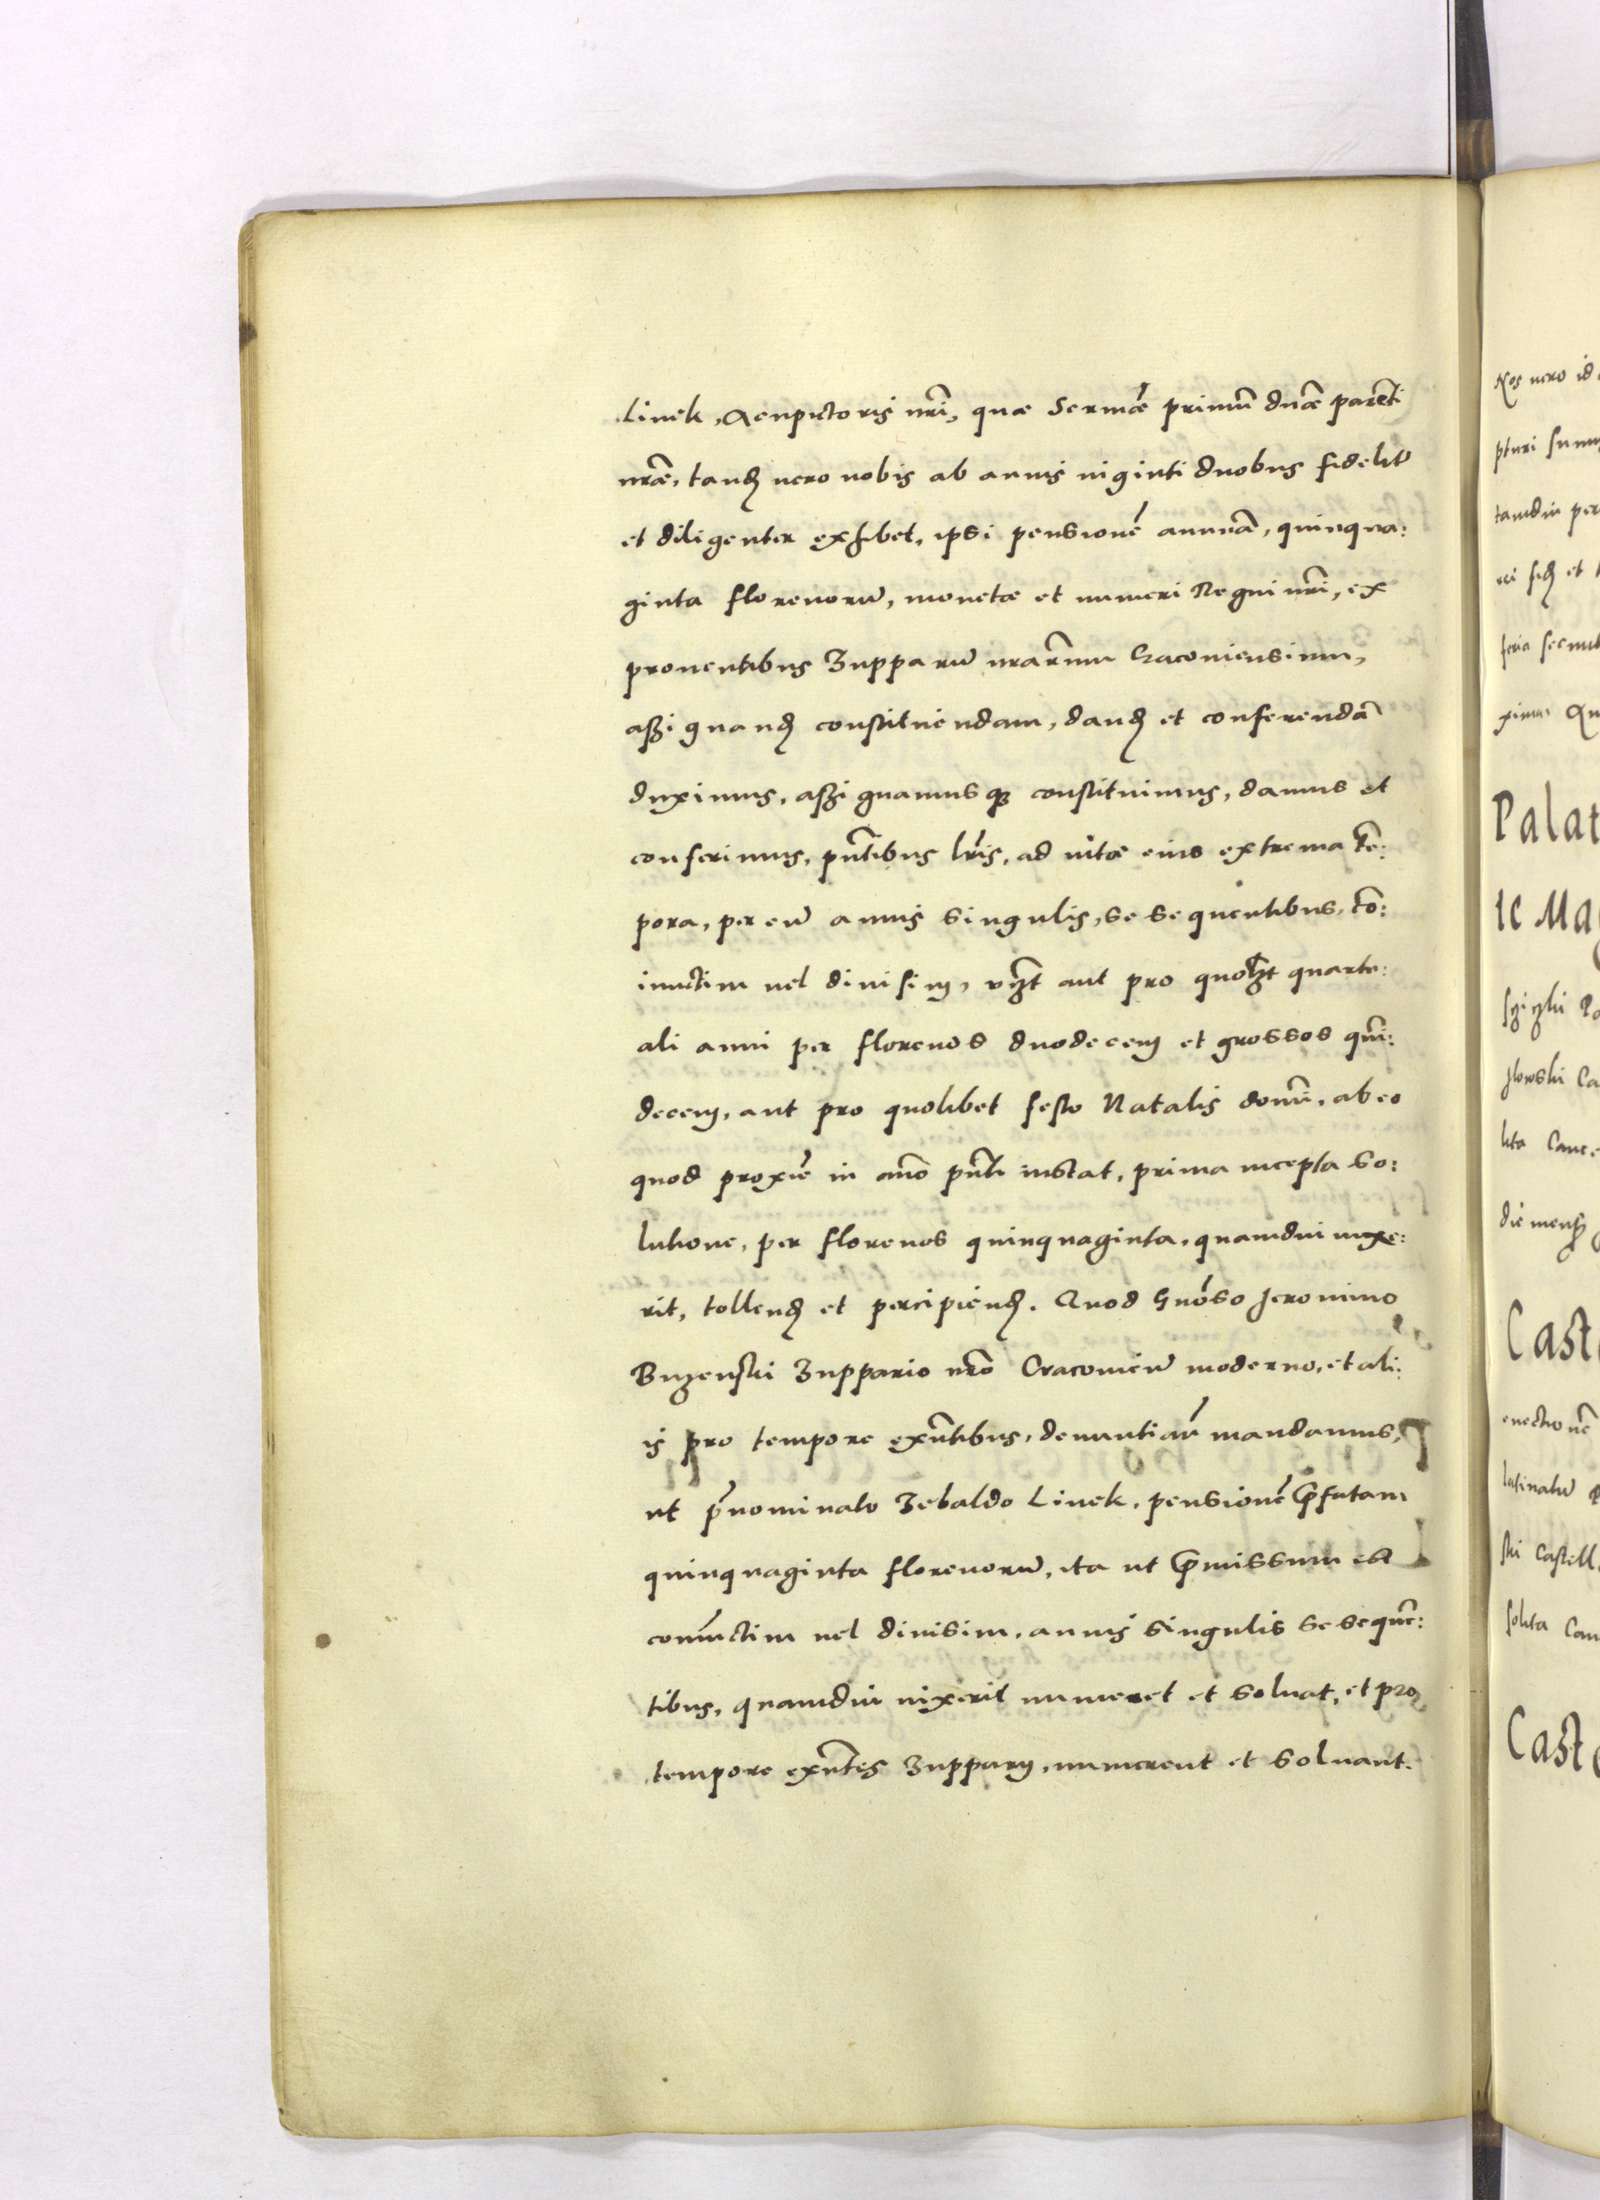 Linek, Acupictoris nrī, quæ Sermæ primū dnæ parēti
nræ, tandē vero nobis ab annis viginti duobus fidelitr
et diligenter exhibet, ipsi pensionē annuā, quinqua:
ginta florenorū, monetæ et numeri Regni nrī, ex
proventibus Zupparū nrarum Cracoviensium,
assignandā constituendam, dandā et conferendā
duximus, assignamusq; constituimus, damus et
conferimus, pntibus lris, ad vitæ eius extrema tē:
pora, per eū annis singulis, se sequentibus, cō:
iunctim vel divisim, vzt aut pro quolzt quarte:
ali anni per florenos duodecem et grossos quī:
decem, aut pro quolibet festo Natalis domī, ab eo
quod proxiē in anō pnti instat, prima incepta so:
lutione, per florenos quinquaginta, quamdiu vixe:
rit, tollendā et percipiendā. Quod Gnoso Jeronimo
Buzenski Zuppario nrō Cracovieū moderno, et ali:
is pro tempore exntibus, denuntiaū mandamus,
ut prænominato Zebaldo Linek, pensionē præfatam
quinquaginta florenorū, ita ut præmissum est
coniunctim vel divisim, annis singulis se sequē:
tibus, quamdiu vixerit numeret et solvat, et pro
tempore exntes Zupparij, numerent et solvant.
Nos vero id
pturi sumus
tamdiu per
ei sed et
feria secund
xima Qu
Palat
ie Mag
Castell
lita Canc
Cast
evectionē
latinatū
ski Castell
solita Can
Cast